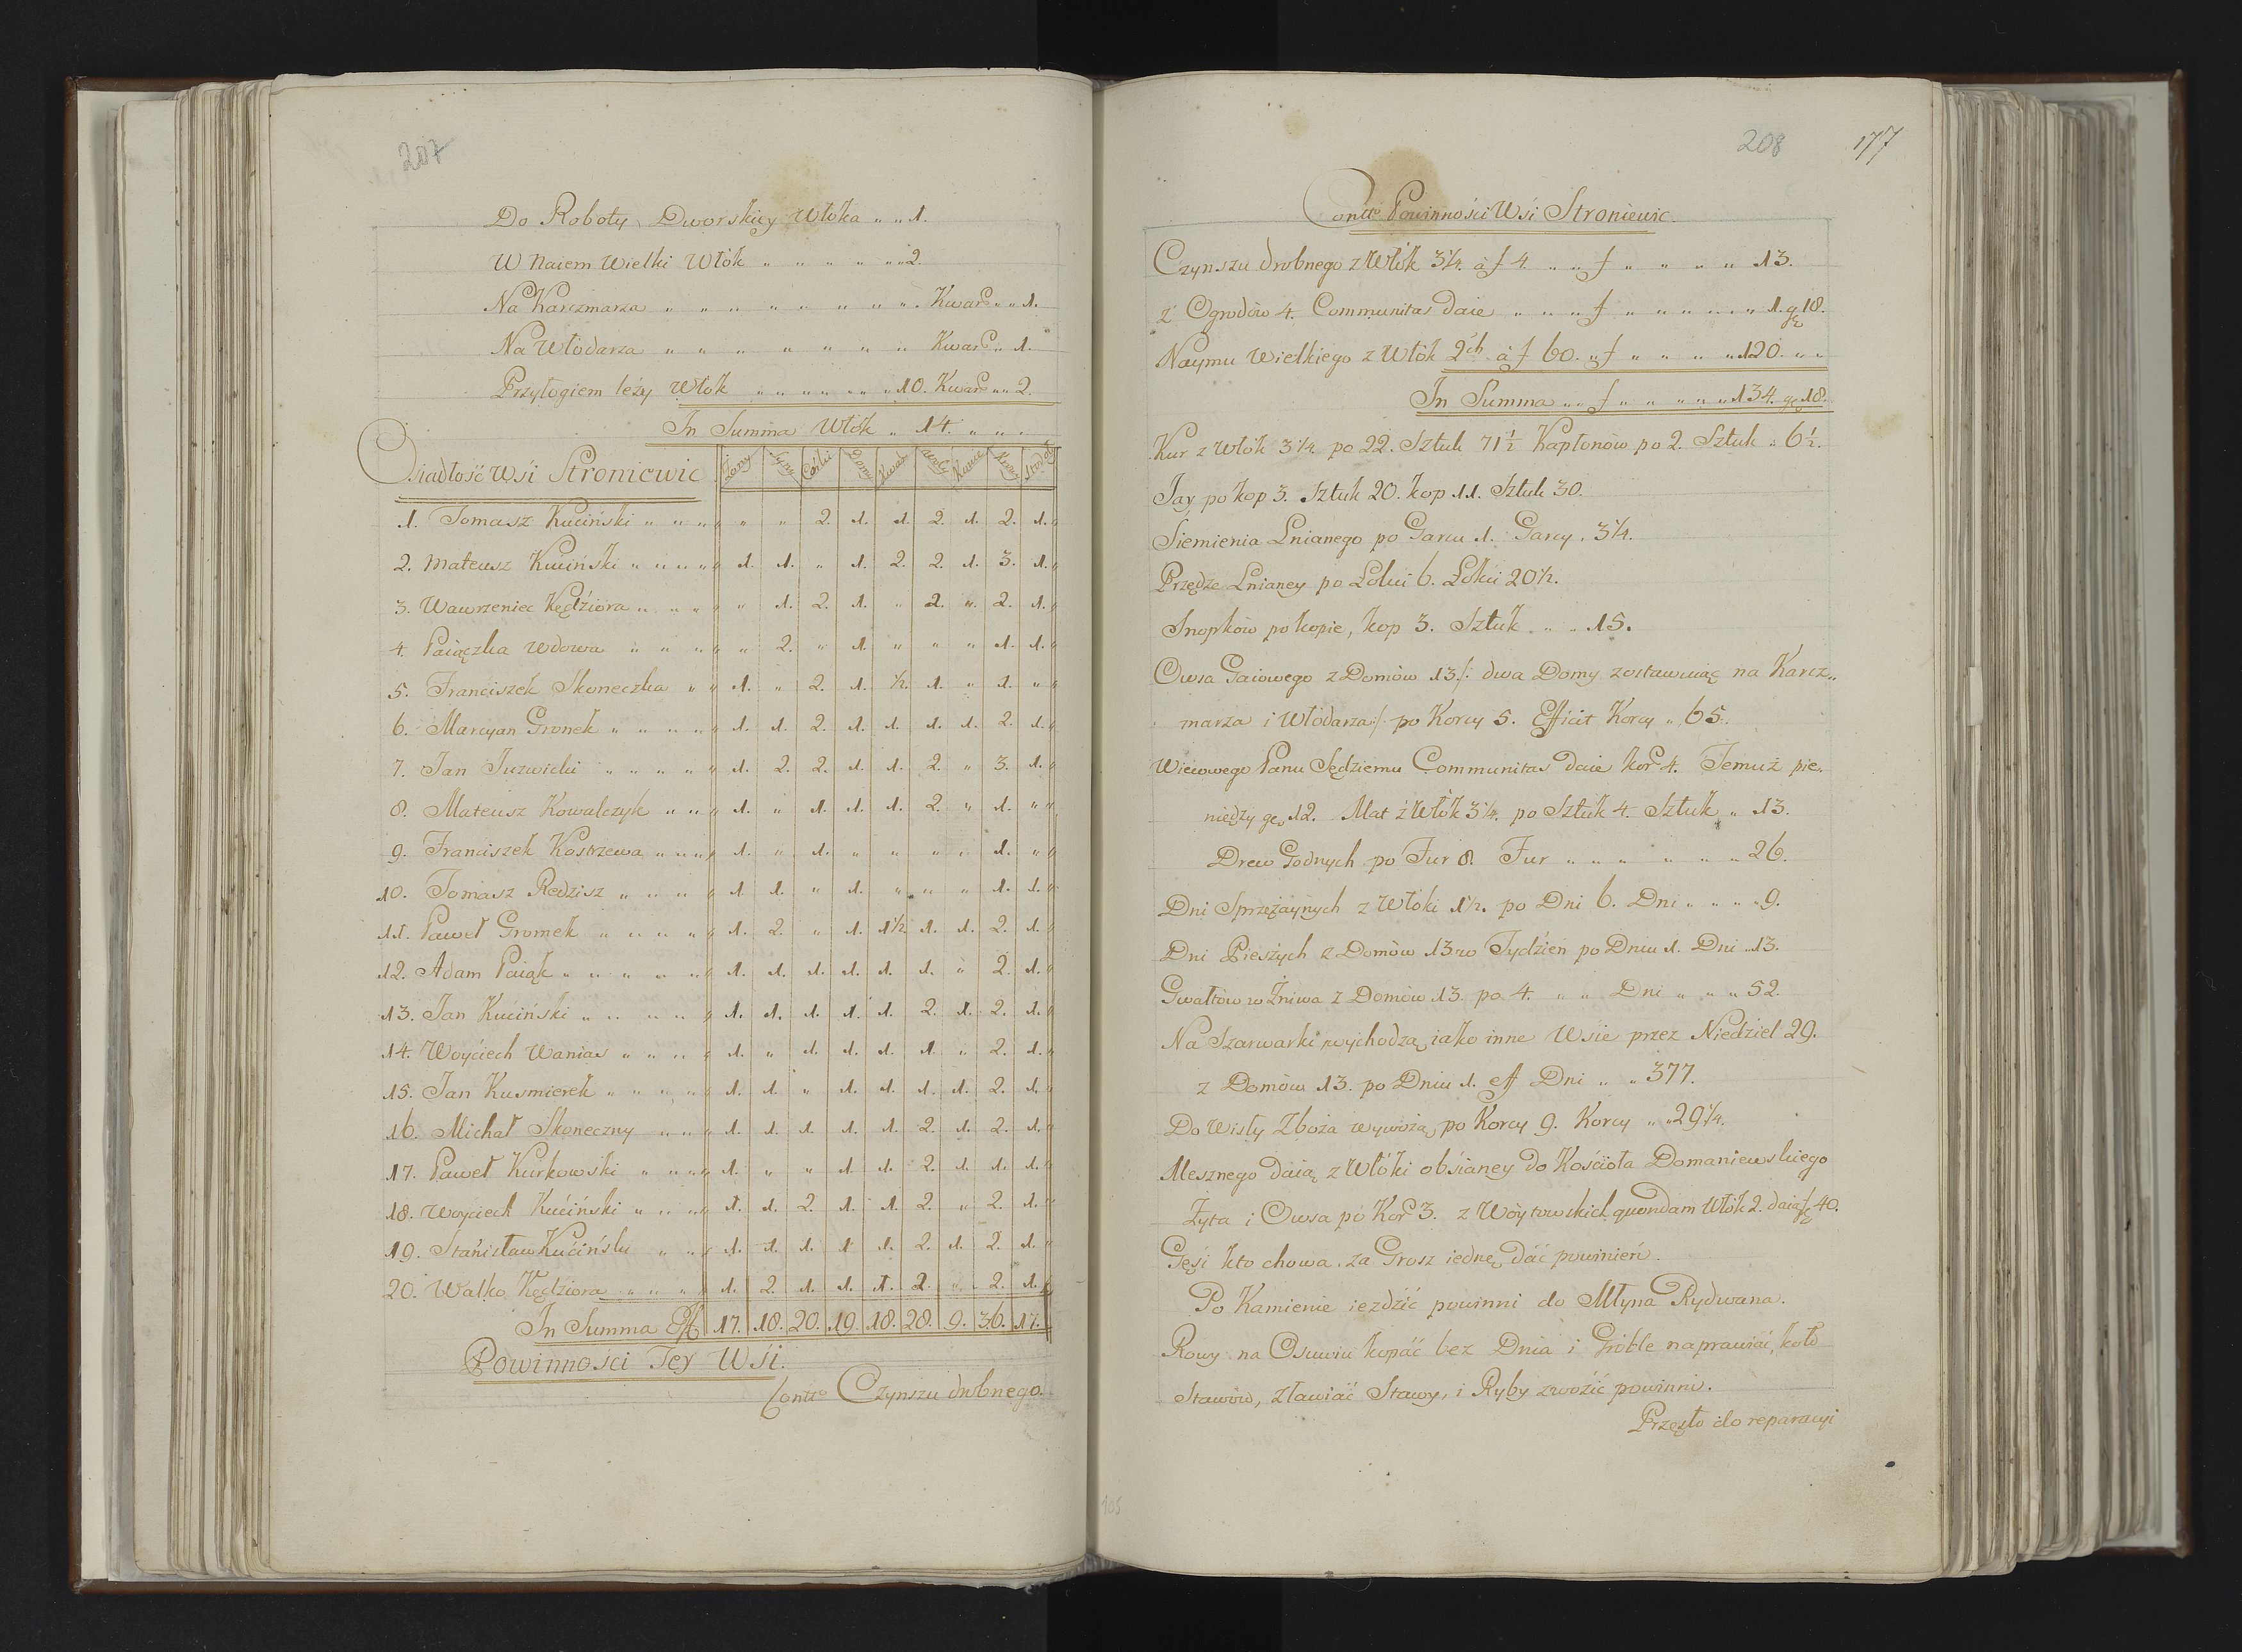 207
Do Roboty Dworskiey Włoka " " 1.
W Naiem Wielki Włók " " " " " " 2.
Na Karczmarza " " " " " " " " " Kwar " " 1.
Na Włodarza " " " " " " " " Kwar " 1.
Przyłogiem leży Włók " " " " " " " 10. Kwar " " 2.
In Summa Włók " 14. " " "
Osiadłość Wsi Stroniewic Żony Syny Córki Domy Kwar Woły Konie Krowy Stodoły
1. Tomasz Kuciński " " " " " 2. 1. 1. 2. 1. 2. 1.
2. Mateusz Kuciński " " " " 1. 1. " 1. 2. 2. 1. 3. 1.
3. Wawrzeniec Kędziora " " " " " 1. 2. 1. " 2. " 2. 1.
4. Paiączka Wdowa " " " " " 2. " 1. " " " 1. 1.
5. Franciszek Skoneczka " " 1. " 2. 1. ½. 1. " 1. "
6. Marcyan Gronek " " " " " 1. 1. 2. 1. 1. 1. 1. 2. 1.
7. Jan Juzwicki " " " " " 1. 2. 2. 1. 1. 2. " 3. 1.
8. Mateusz Kowalczyk " " " 1. " 1. 1. 1. 2. " 1. "
9. Franciszek Kostrzewa " " " " 1. " 1. " " " " 1. "
10. Tomasz Redzisz " " " " " 1 1. " 1. " " " 1. 1.
11. Paweł Gromek " " " " " 1. 2. " 1. 1½ 1. 1. 2. 1.
12. Adam Paiąk " " " " " " 1. 1. 1. 1. 1. 1. " 2. 1.
13. Jan Kuciński " " " " " 1. 1. 1. 1. 1. 2. 1. 2. 1.
14. Woyciech Wanias " " " " 1. " 1. 1. 1. 1. " 2. 1.
15. Jan Kusmierek " " " " " 1. 1. " 1. 1. 1. 1. 2. 1.
16. Michał Skoneczny " " " 1. 1. 1. 1. 1. 2. 1. 2. 1.
17. Paweł Kurkowski " " " " 1. " " 1. 1. 2. 1. 1. 1.
18. Woyciech Kuciński " " " " 1. 1. 2. 1. 1. 2. " 2. 1.
19. Stanisław Kuciński " " " 1. 1. 1. 1 1. 2. 1. 2. 1.
20. Walko Kędziora " " " " 1. 2. 1. 1. 1. 2. " 2. 1.
In Summa Eff 17. 18. 20. 19. 18. 28. 9. 36. 17.
Powinności Tey Wsi.
Contto Czynszu drobnego.
208 177
Contto Powinności Wsi Stroniewic.
Czynszu drobnego z Włók 3¼. à f 4. " " f " " " " 13.
z Ogrodów 4. Communitas daie " " " f " " " " " 1. g 18.
Naymu Wielkiego z Włók 2ch à f 60. " f " " " " 120. " "
In Summa " " f " " " " " 134. g 18.
Kur z Włók 3¼ po 22. Sztuk 71½ Kapłonów po 2. Sztuk " 6½.
Jay po kop 3. Sztuk 20. kop 11. Sztuk 30.
Siemienia Lnianego po Garcu 1. Garcy. 3¼.
Przędze Lnianey po Lokci 6. Lokci 20½.
Snopków po kopie, kop 3. Sztuk " " 15.
Owsa Gaiowego z Domów 13 /: dwa Domy zostawuiąc na Karcz„
marza i Włodarza :/ po Korcy 5. Efficit Korcy " 65.
Wiecowego Panu Sędziemu Communitas daie kor 4. Temuż pie„
niędzy g 12. Mat z Włók 3¼. po Sztuk 4. Sztuk " 13.
Drew Godnych po Fur 8. Fur " " " " " " 26.
Dni Sprzężaynych z Włóki 1½. po Dni 6. Dni " " " " 9.
Dni Pieszych z Domów 13 w Tydzień po Dniu 1. Dni " 13.
Gwałtów w Żniwa z Domów 13. po 4. " " Dni " " " 52.
Na Szarwarki wychodzą iako inne Wsie przez Niedziel 29.
z Domów 13. po Dniu 1. eff Dni " " 377.
Do Wisły Zboża wywożą po Korcy 9. Korcy " " 29¼.
Mesznego daią z Włóki obsianey do Kościoła Domaniewskiego
Żyta i Owsa po Kor 3. z Wóytowskich quondam Włók 2. daią f 40.
Gęsi kto chowa za Grosz iednę dać powinień.
Po Kamienie iezdzić powinni do Młyna Rydwana.
Rowy na Osuwiu kopać bez Dnia i Groble naprawiać, koło
Stawów, zławiać Stawy, i Ryby zwozić powinni.
Przęsło do reparacyi
105